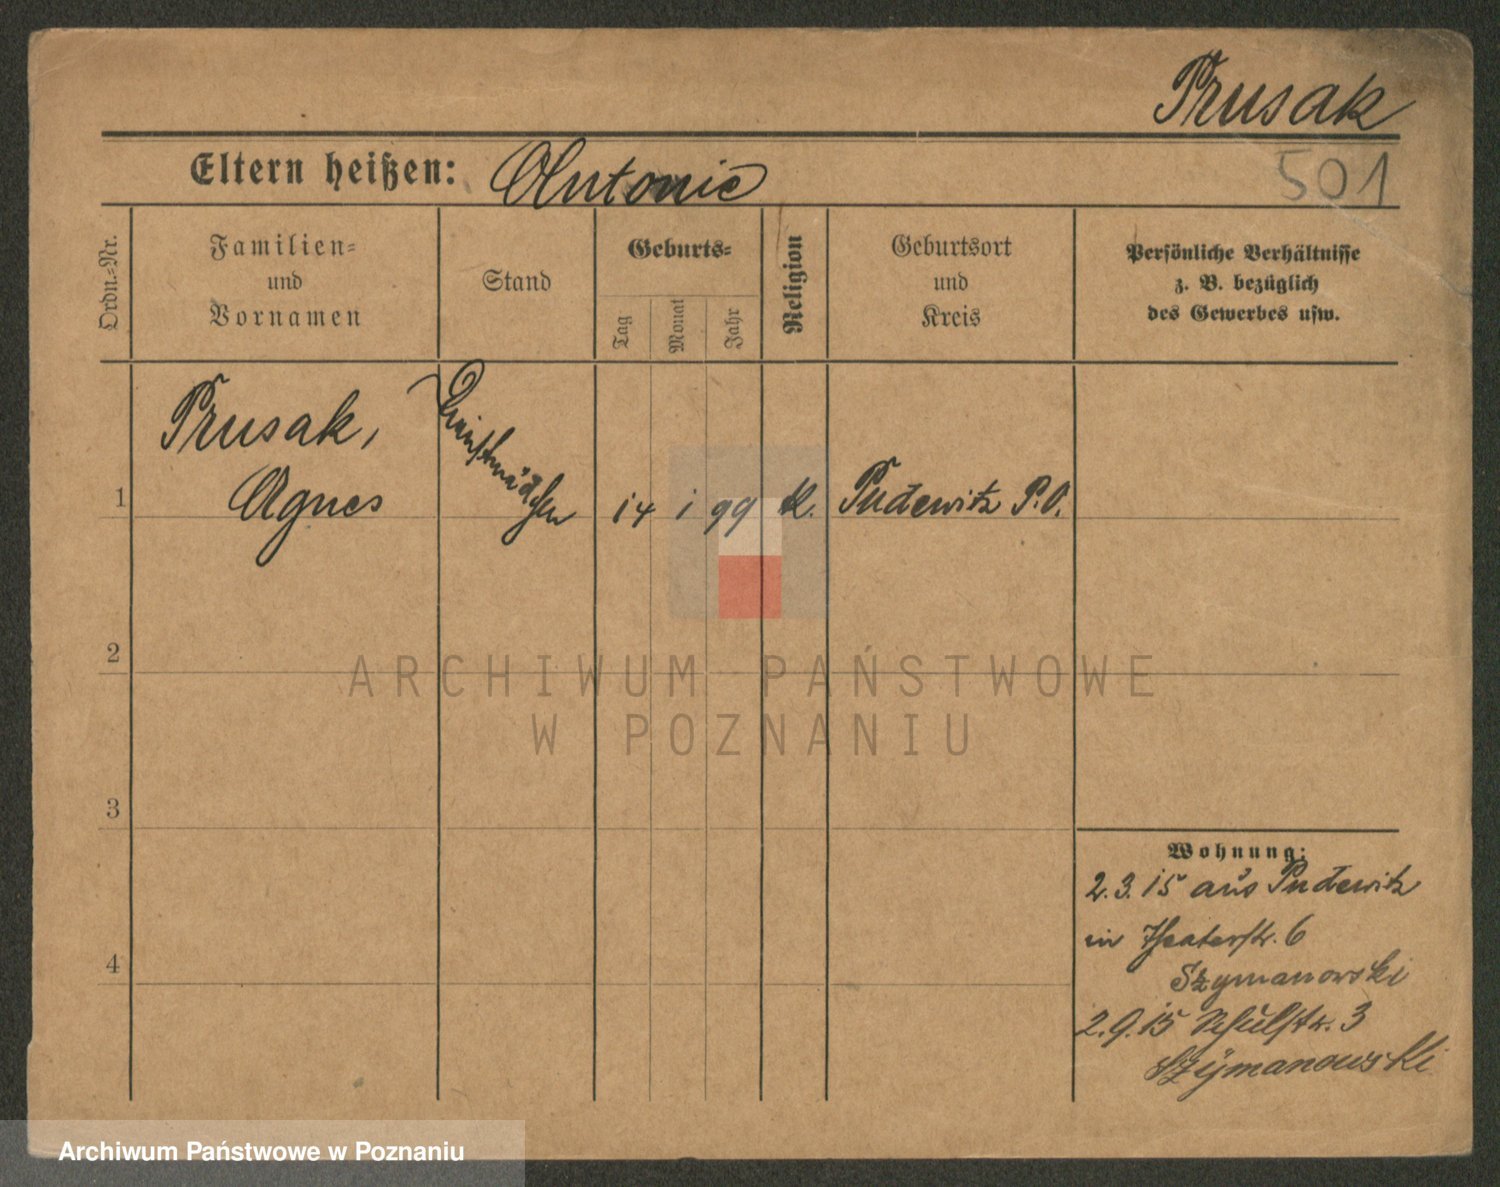 Prusak
Eltern heißen: Antonie
501
Ordn.-Nr.
Familien-
und
Vornamen
Stand
Geburts-
Tag
Monat
Jahr
Religion
Geburtsort
und
Kreis
Persönliche Verhältnisse
z. B. bezüglich
des Gewerbes usw.
Prusak,
1 Agnes Dienstmädchen 14 1 99 K. Pudewitz P.O.
2
3
4
Wohnung:
2.3.15 aus Pudewitz
in Theaterstr. 6
Szymanowski
2.9.15 Schulstr. 3
Szymanowski
ARCHIWUM PAŃSTWOWE
W POZNANIU
Archiwum Państwowe w Poznaniu